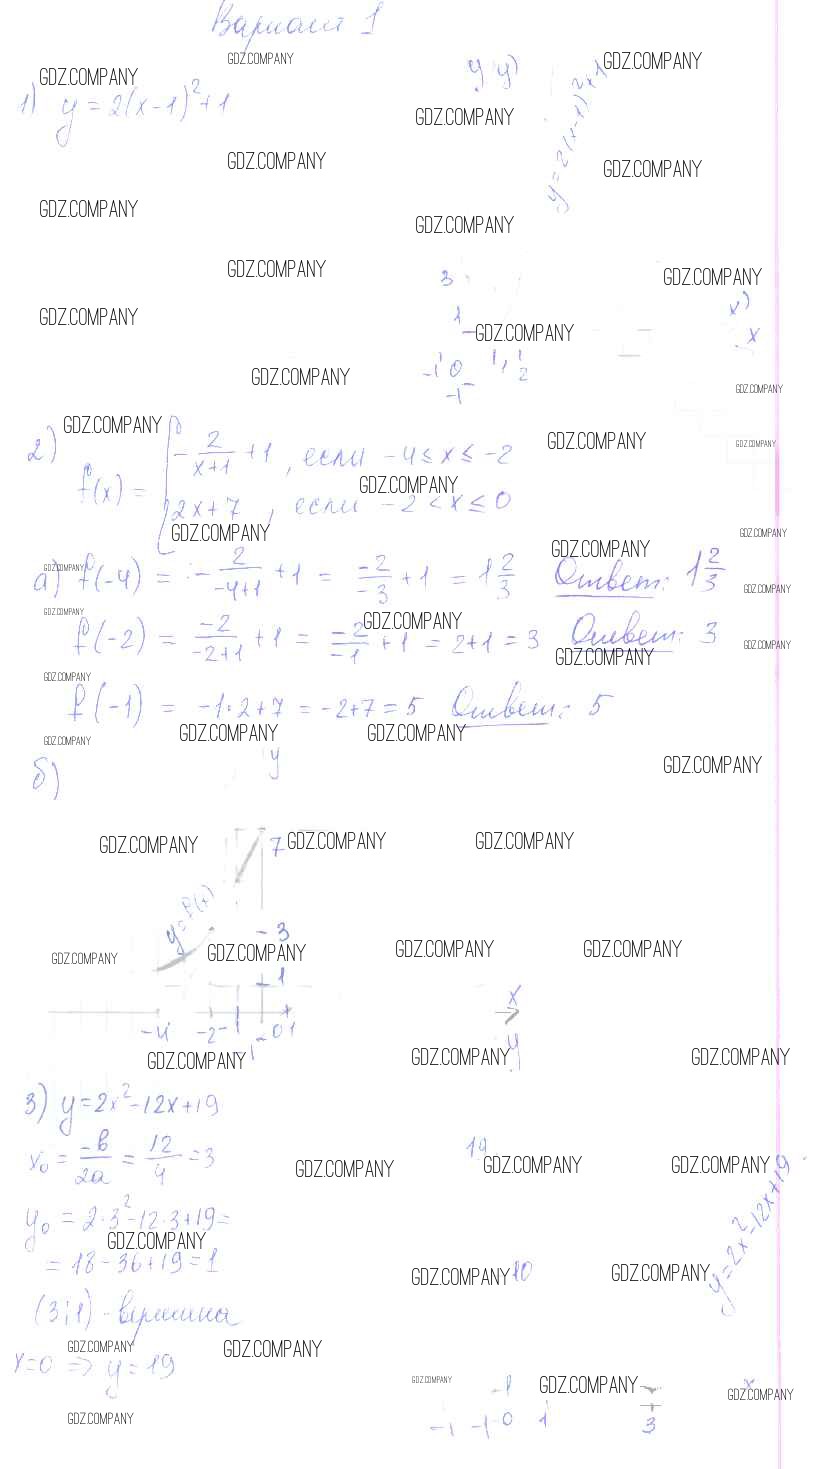 Вариант 1
1) y = 2(x-1)²+1
y y)
y=2(x-1)²+1
3
1
x)
x
-1 0 1 1 2
-1
2) f(x) = { -2/(x+1) +1, если -4 ≤ x ≤ -2
2x+7, если -2 < x ≤ 0
а) f(-4) = -2/(-4+1) +1 = -2/-3 +1 = 1 2/3 Ответ: 1 2/3
f(-2) = -2/(-2+1) +1 = -2/-1 +1 = 2+1 = 3 Ответ: 3
f(-1) = -1·2+7 = -2+7 = 5 Ответ: 5
б)
y
7
y=f(x)
3
1
-4 -2 -1 0 1
x
3) y=2x²-12x+19
x₀ = -в/2a = 12/4 = 3
y₀ = 2·3²-12·3+19=
= 18-36+19=1
(3;1) - вершина
x=0 => y=19
y
19
10
y=2x²-12x+19
1
-1 0 1 3
x
GDZ.COMPANY